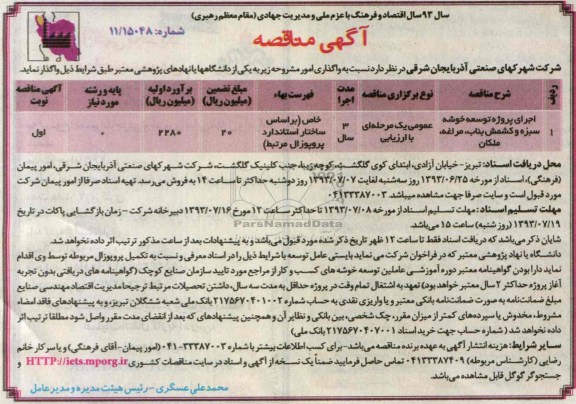 سال ۹۳ سال اقتصاد و فرهنگ با عزم ملی و مدیریت جهادی (مقام معظم رهبری)
شماره: ۱۱/۱۵۰۴۸
آگهی مناقصه
شرکت شهرکهای صنعتی آذربایجان شرقی در نظر دارد نسبت به واگذاری امور مشروحه زیر به یکی از دانشگاهها یا نهادهای پژوهشی معتبر طبق شرایط ذیل واگذار نماید.
ردیف شرح مناقصه نوع برگزاری مناقصه مدت اجرا فهرست بهاء مبلغ تضمین (میلیون ریال) برآورد اولیه (میلیون ریال) پایه و رشته مورد نیاز آگهی مناقصه نوبت
۱ اجرای پروژه توسعه خوشه سبزه و کشمش بناب، مراغه، ملکان عمومی یک مرحله‌ای با ارزیابی ۳ سال خاص (براساس ساختار استاندارد پروپوزال مرتبط) ۲۰ ۲۲۸۰ ۰ اول
محل دریافت اسناد: تبریز - خیابان آزادی، ابتدای کوی گلگشت، کوچه زیبا، جنب کلینیک گلگشت، شرکت شهرکهای صنعتی آذربایجان شرقی، امور پیمان
(فرهنگی)، اسناد از مورخه ۱۳۹۳/۰۶/۲۵ روز سه‌شنبه لغایت ۱۳۹۳/۰۷/۰۷ روز دوشنبه حداکثر تا ساعت ۱۴ به فروش می‌رسد. تهیه اسناد صرفا از امور پیمان شرکت
مورد قبول است و سایت صرفا جهت مشاهده میباشد. ۰۴۱۳۳۳۸۷۰۰۳
مهلت تسلیم اسناد: مهلت تسلیم اسناد از مورخه ۱۳۹۳/۰۷/۰۸ تا حداکثر ساعت ۱۲ مورخ ۱۳۹۳/۰۷/۱۶ دبیرخانه شرکت - زمان بازگشایی پاکات در تاریخ
۱۳۹۳/۰۷/۱۹ (روز شنبه) ساعت ۱۵ می‌باشد.
شایان ذکر می‌باشد که دریافت اسناد فقط تا ساعت ۱۲ ظهر تاریخ ذکر شده مورد قبول می‌باشد و به پیشنهادات بعد از ساعت مذکور ترتیب اثر داده نخواهد شد.
دانشگاه یا نهاد پژوهشی معتبر که در فراخوان شرکت می نماید بایستی عامل توسعه با شرایط ذیل را در اسناد معرفی و نسبت به تکمیل پروپوزال مربوطه توسط وی اقدام
نماید دارا بودن گواهینامه معتبر دوره آموزشی عاملین توسعه خوشه های کسب و کار از مراجع مورد تایید سازمان صنایع کوچک (گواهینامه های دریافتی بدون تجربه
آغاز پروژه حداکثر ۲ سال معتبر خواهد بود) تعهد به اشتغال تمام وقت در پروژه حداقل به مدت سه سال، داشتن تحصیلات مرتبط ترجیحا مدیریت اقتصاد مهندسی صنایع
مبلغ ضمانت‌نامه به صورت ضمانت‌نامه بانکی معتبر و یا واریز نقدی به حساب شماره ۲۱۷۵۶۷۰۴۰۱۰۰۲ بانک ملی شعبه ششگلان تبریز، و به پیشنهادهای فاقد امضاء
مشروط، مخدوش یا سپرده‌های کمتر از میزان مقرر، چک شخصی، بین بانکی و نظایر آن و همچنین پیشنهادهای که بعد از انقضای مدت مقرر واصل شود مطلقا ترتیب اثر
داده نخواهد شد (شماره حساب جهت خرید اسناد ۲۱۷۵۶۷۰۴۰۷۰۰۱ بانک ملی)
سایر شرایط: هزینه انتشار آگهی به عهده برنده مناقصه می‌باشد - برای کسب اطلاعات بیشتر با شماره ۳۳۳۸۷۰۰۳-۰۴۱ (امور پیمان - آقای فرهنگی) و یا سرکار خانم
رضایی (کارشناس مربوطه) ۰۴۱۳۳۳۸۷۴۰۹ تماس حاصل فرمایید ضمناً یک نسخه از آگهی و اسناد در سایت مناقصات کشوری HTTP://iets.mporg.ir و
جستجوگر گوگل قابل مشاهده می‌باشد.
محمدعلی عسگری - رئیس هیئت مدیره و مدیرعامل
ParsNamadData